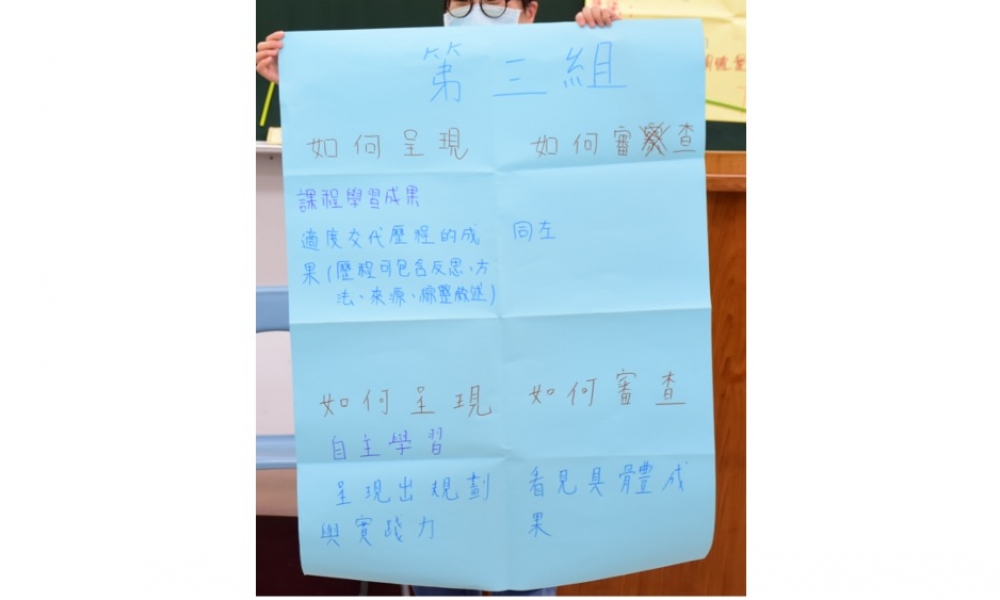 第三組
如何呈現 如何審查
課程學習成果
適度交代歷程的成 同左
果(歷程可包含反思、方
法、來源、統整敘述)
如何呈現 如何審查
自主學習
呈現出規劃 看見具體成
與實踐力 果